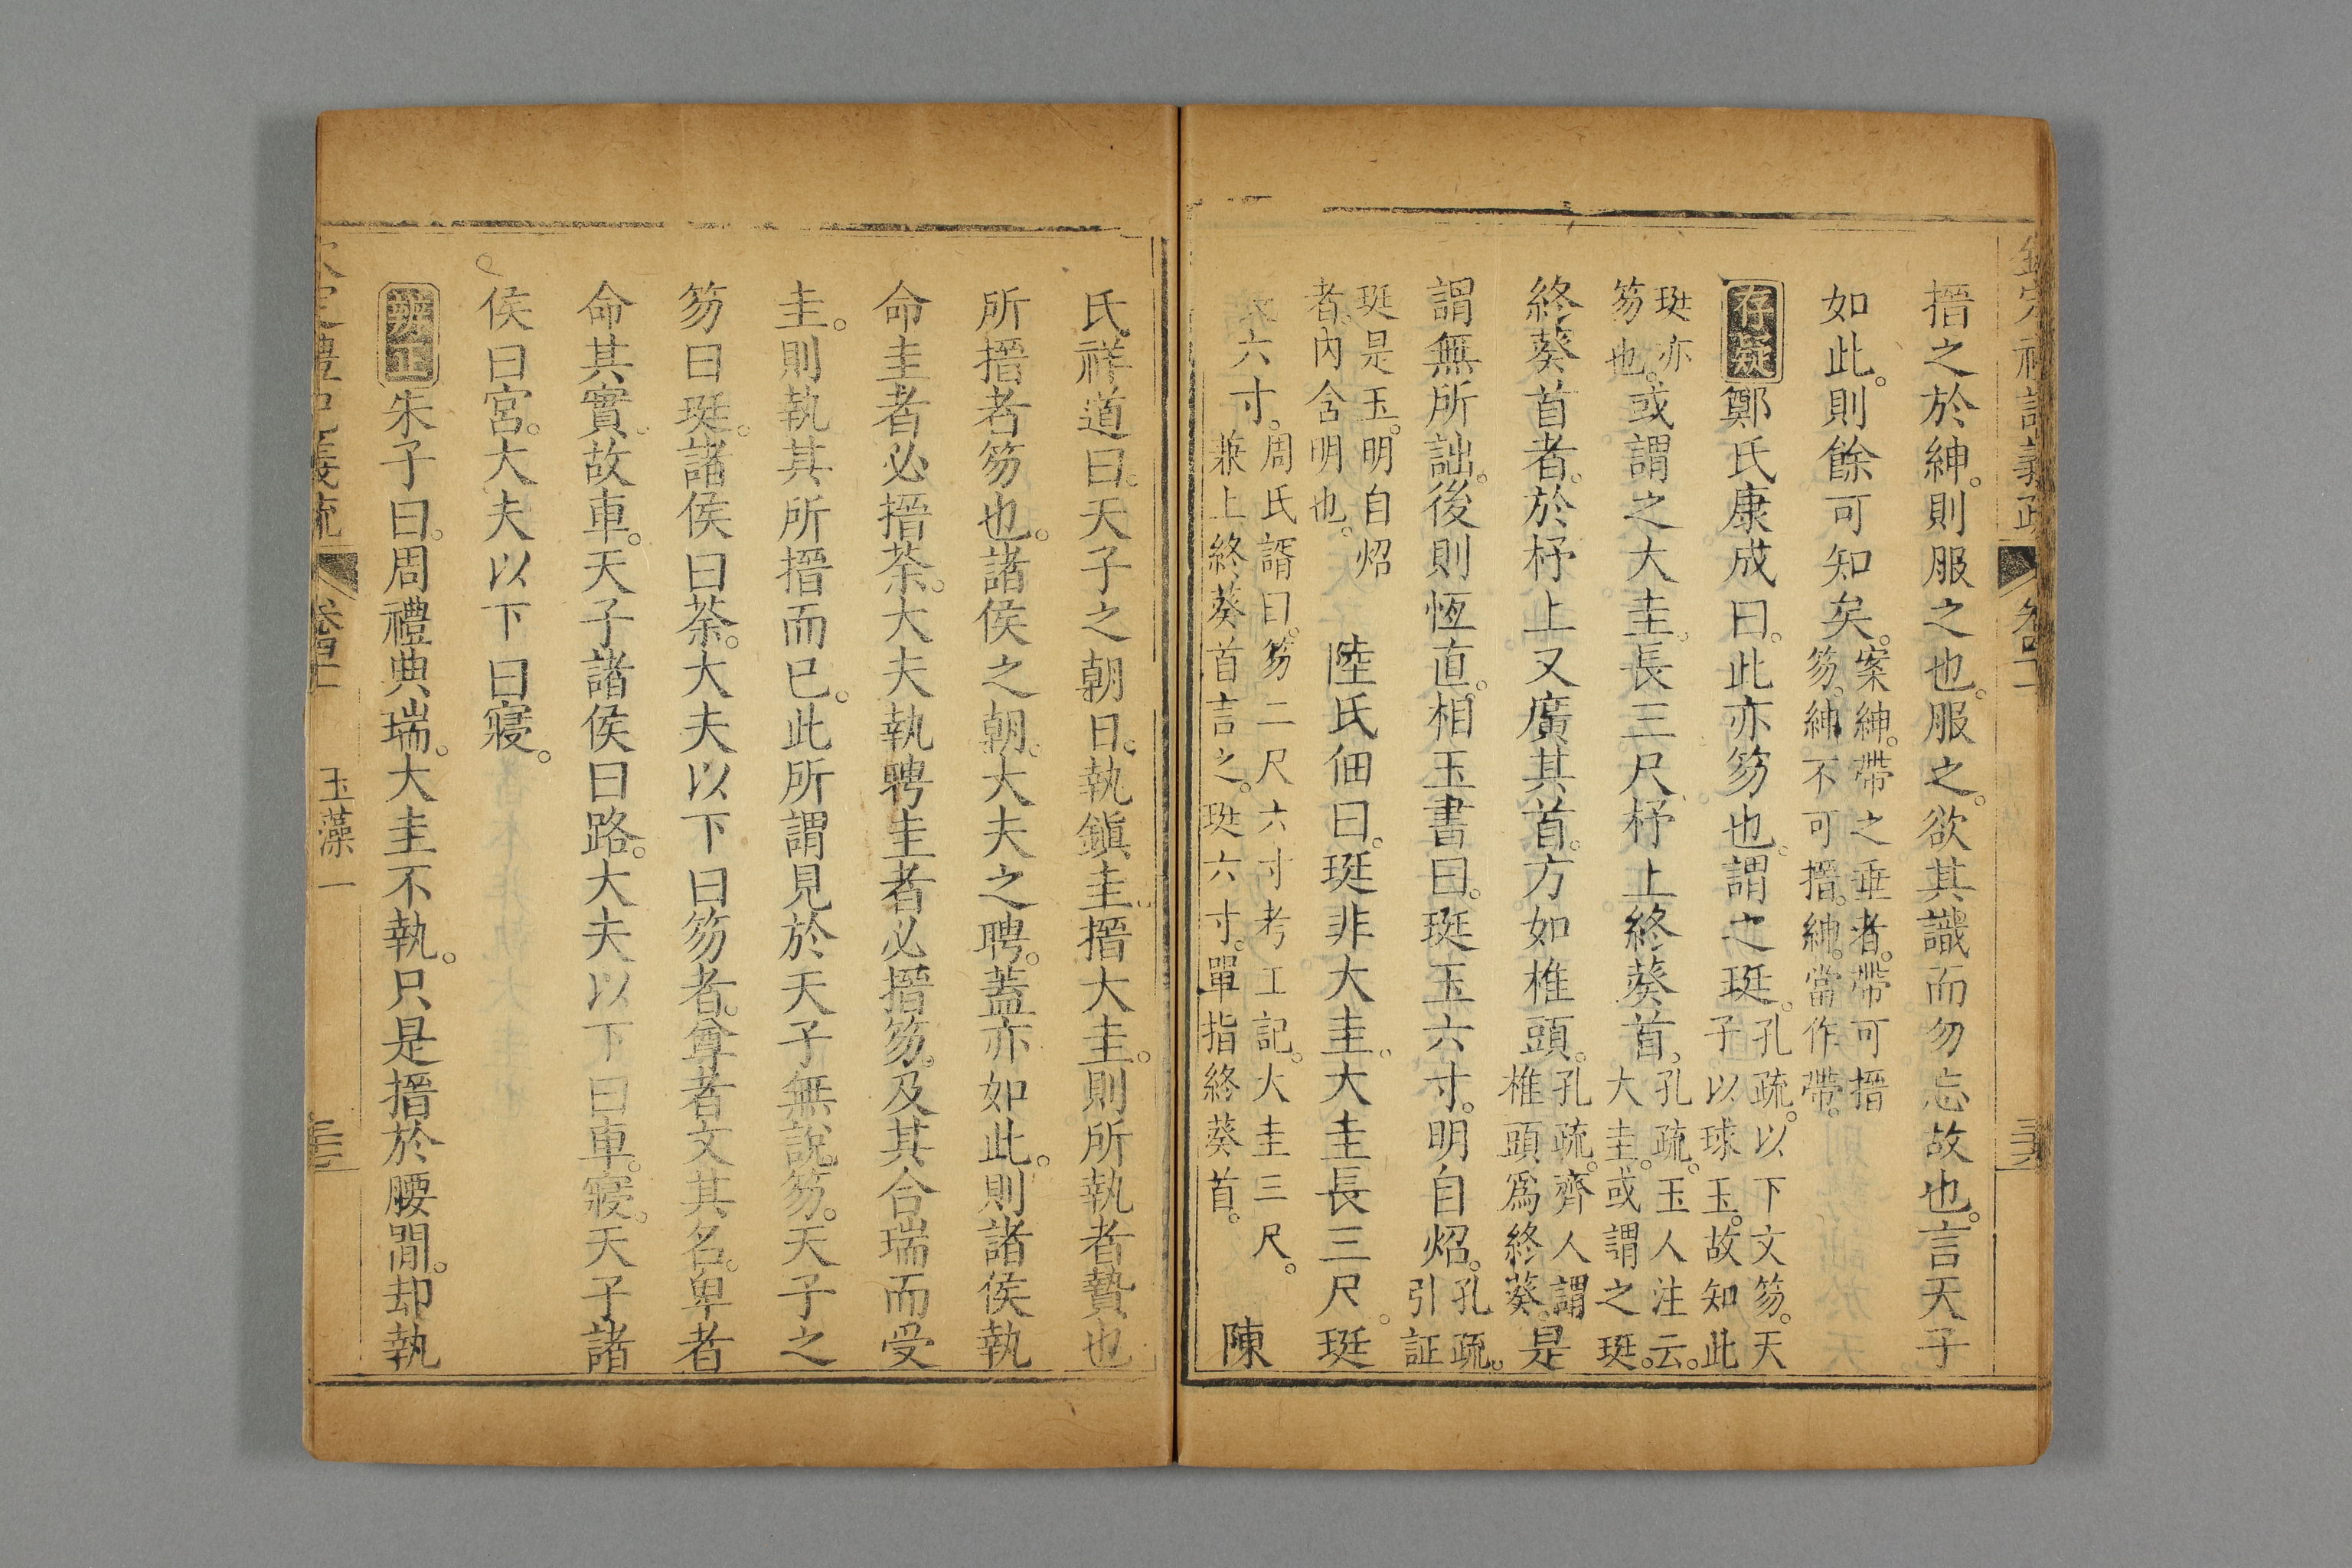 搢之於紳。則服之也。服之。欲其識而勿忘故也。言天子
如此。則餘可知矣。案紳。帶之垂者。帶可搢笏。紳不可搢。紳。當作帶。
存疑鄭氏康成曰。此亦笏也。謂之珽。孔疏。以下文笏。天子以球玉。故知此
珽亦笏也。或謂之大圭。長三尺。杼上終葵首。孔疏。玉人注云。大圭。或謂之珽。
終葵首者。於杼上又廣其首。方如椎頭。孔疏。齊人謂椎頭爲終葵。是
謂無所詘。後則恆直。相玉書曰。珽玉六寸。明自炤。孔疏。引証
珽是玉。明自炤者。內含明也。 陸氏佃曰。珽非大圭。大圭長三尺。珽
六寸。周氏諝曰。笏二尺六寸考工記。大圭三尺。兼上終葵首言之。珽六寸。單指終葵首。 陳
氏祥道曰。天子之朝日。執鎮圭。搢大圭。則所執者贄也
所搢者笏也。諸侯之朝。大夫之聘。蓋亦如此。則諸侯執
命圭者必搢荼。大夫執聘圭者必搢笏。及其合瑞而受
圭。則執其所搢而已。此所謂見於天子無說笏。天子之
笏曰珽。諸侯曰荼。大夫以下曰笏者。尊者文其名。卑者
命其實。故車。天子諸侯曰路。大夫以下曰車。寢。天子諸
侯曰宮。大夫以下曰寢。
辨正朱子曰。周禮典瑞。大圭不執。只是搢於腰間。却執
玉藻一